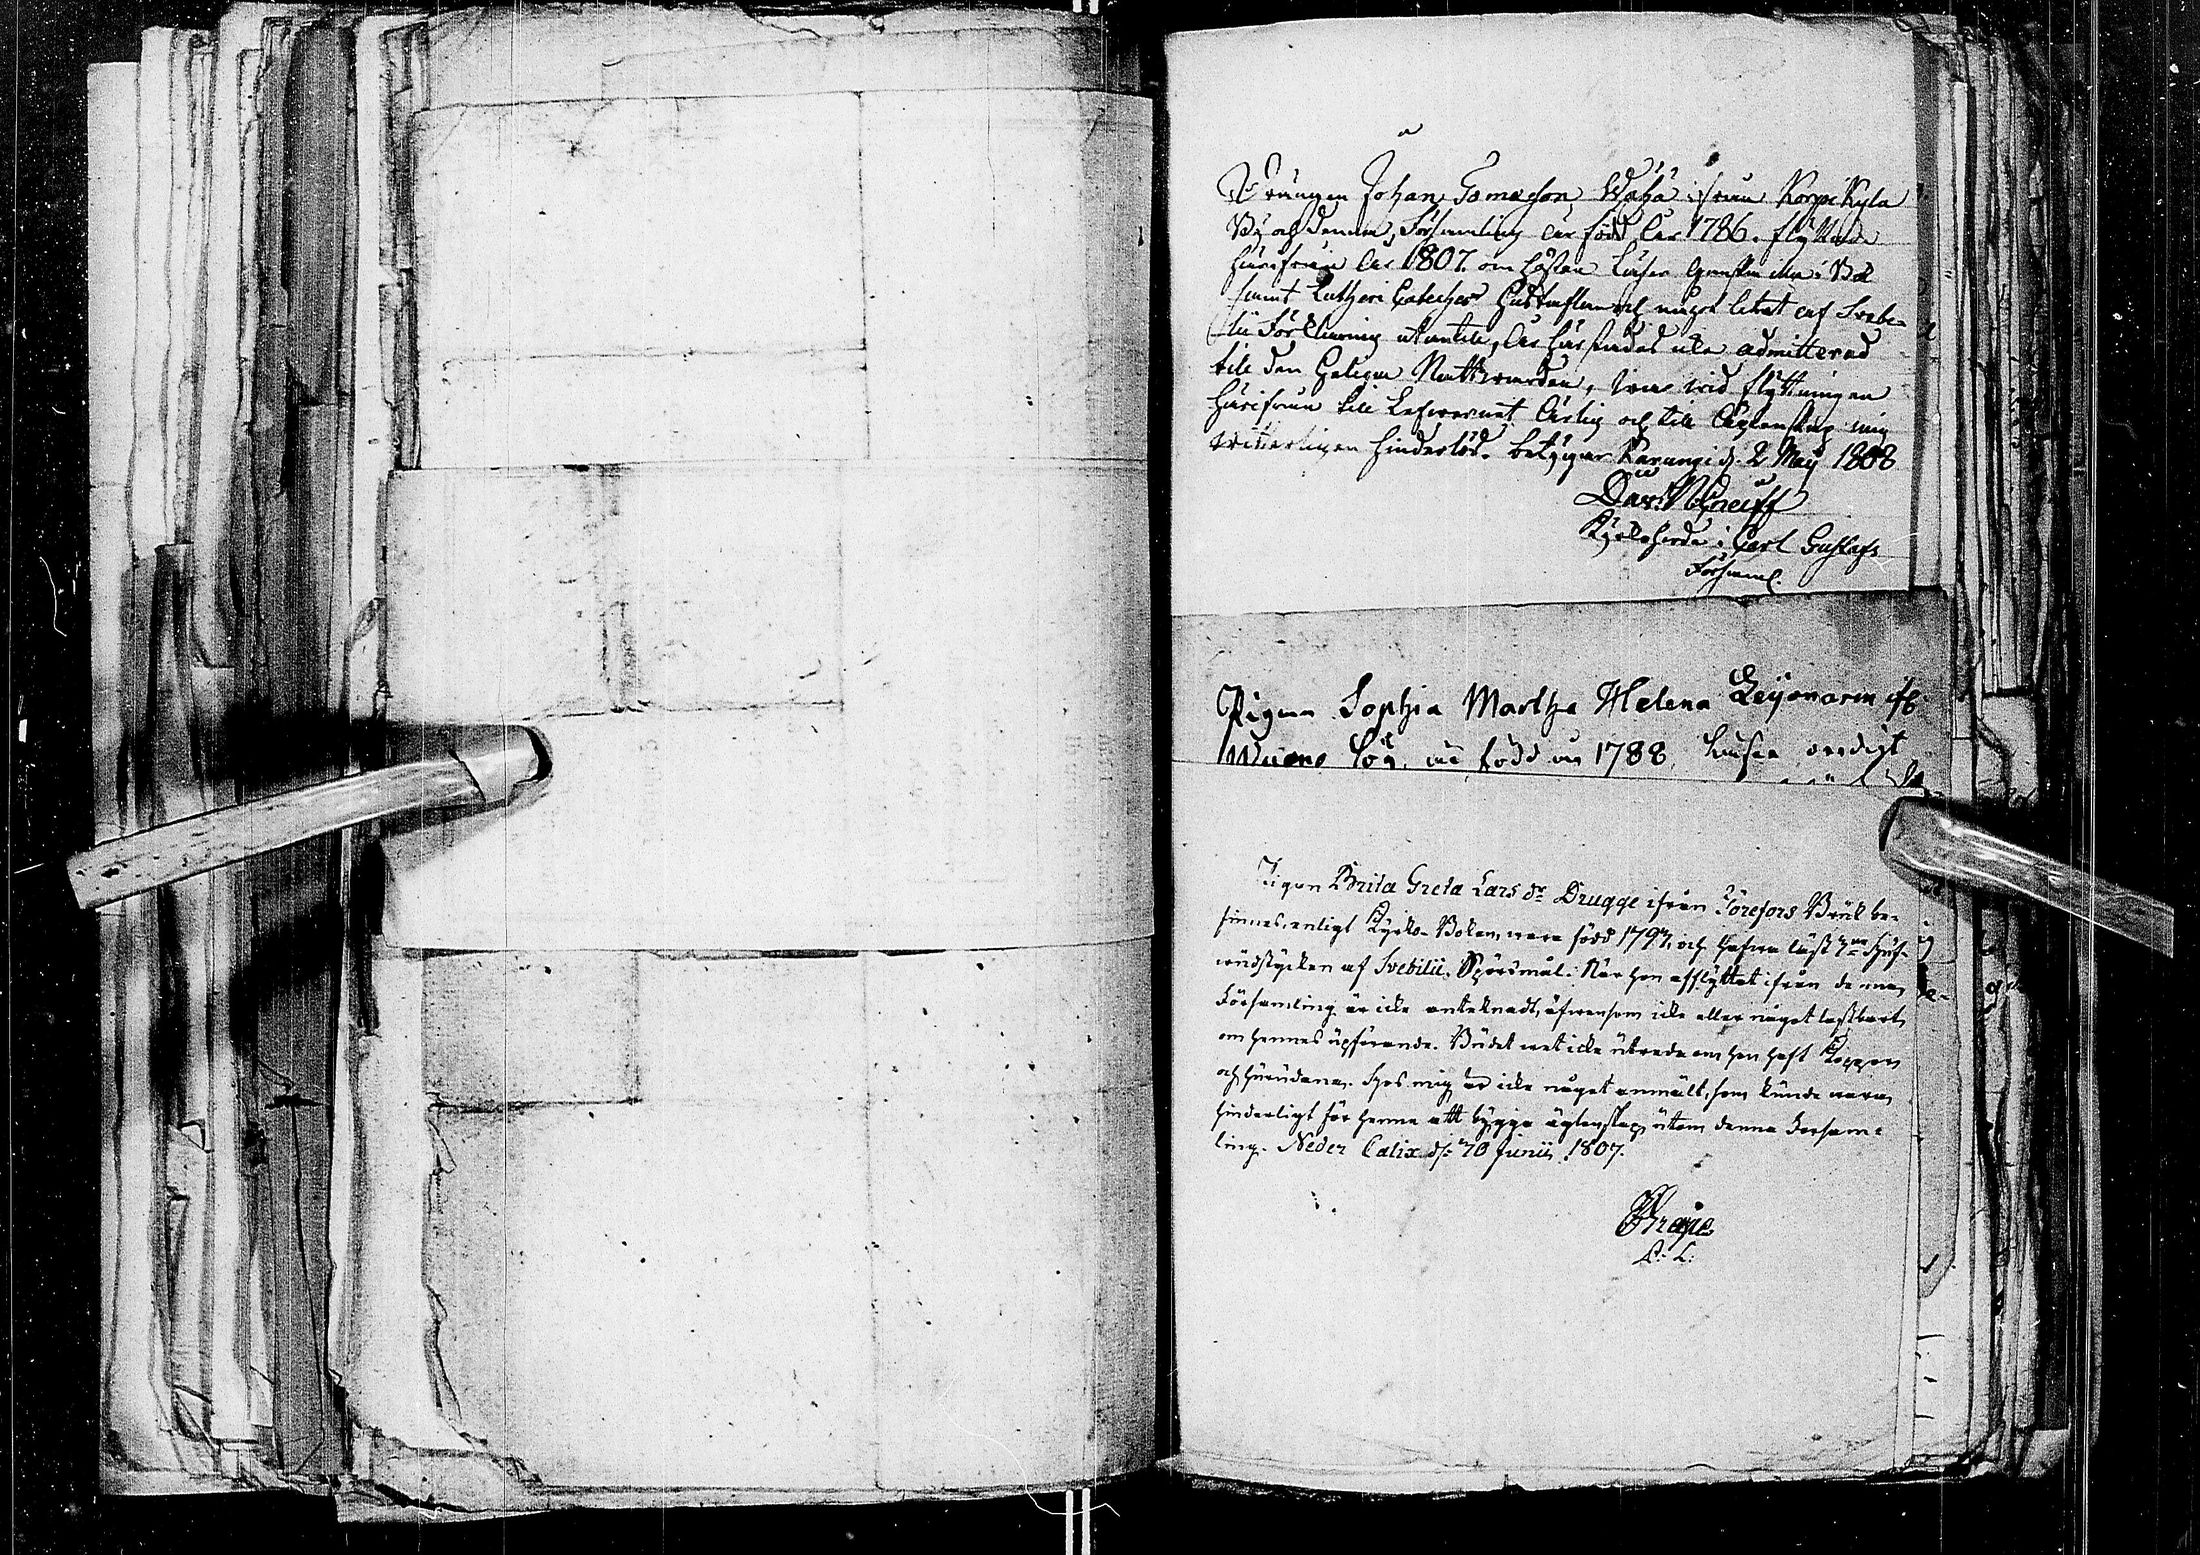 Drängen Johan Tomasson Waha ifrån Korpikyla
By och denna Församling är född år 1786. flyttade
härifrån år 1807. om hösten läser Swenska i Bok
samt Lutheri Cateches Hustaflan och något litet af Svebe-
lii Förklaring utantill, är härstädes ute admitterad
till den Heliga Nattwarden, war wid flyttningen
härifrån till Lefwernet Ärlig och till Ägtenskap mig
witterligen hinderlös. betygar Karungi d. 2 Maij 1808
Dav: N Greiff
Kyrkoherde i Carl Gustafs
Församl.
Pigan Sophia Martha Helena Leijonarm if:
född 1788, läser ordigt
Pigan Brita Greta Lars dr Drugge ifrån Törefors Bruk be-
finnes, enligt Kyrko-Boken, vara född 1797, och hafva läst Huf-
vudstycken af Svebilii Spörsmål. När hon afflyttat ifrån denna
Församling är icke antecknadt, äfvensom icke eller något lastbart
om hennes upförande. Budet vet icke utreda om hon haft Koppor
och hurudana. Hos mig är icke något anmält, som kunde vara
hinderligt för henne att bygga ägtenskap utom denna Försam-
ling. Neder Calix d: 10 Junii 1807.